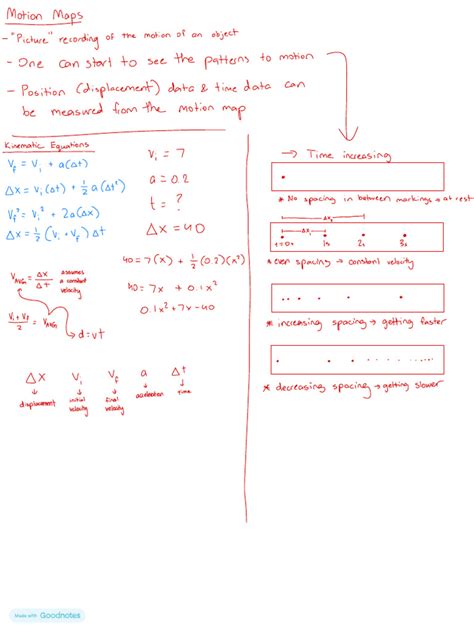 Motion Maps
- "Picture" recording of the motion of an object
- One can start to see the patterns to motion
- Position (displacement) data & time data can
be measured from the motion map
Kinematic Equations
Vf = Vi + a(Δt)
Δx = Vi(Δt) + 1/2 a(Δt²)
Vf² = Vi² + 2a(Δx)
Δx = 1/2 (Vi + Vf) Δt
VAVG = Δx/Δt assumes
a constant
velocity
Vi + Vf / 2 = VAVG
→ d = vt
Vi = 7
a = 0.2
t = ?
Δx = 40
40 = 7(x) + 1/2 (0.2)(x²)
40 = 7x + 0.1x²
0.1x² + 7x - 40
Δx Vi Vf a Δt
↓ ↓ ↓ ↓ ↓
displacement initial velocity final velocity acceleration time
→ Time increasing
* No spacing in between markings → at rest
Δx,
t=0s 1s 2s 3s
* even spacing → constant velocity
* increasing spacing → getting faster
* decreasing spacing → getting slower
Made with Goodnotes